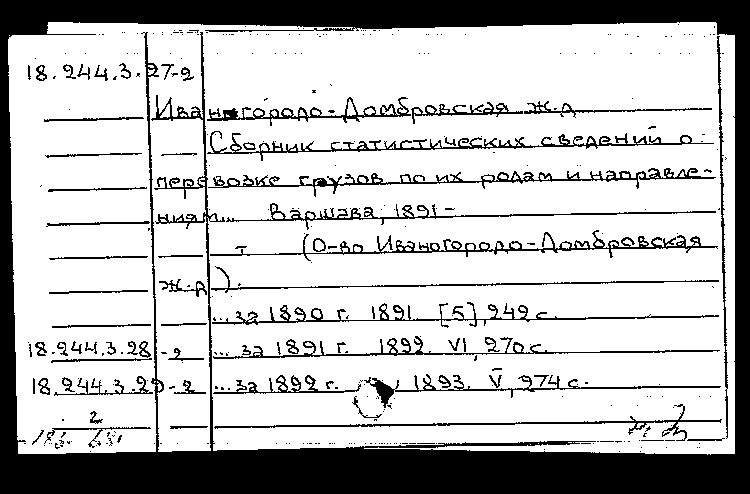 18.244.3.27-2
Ивангородо-Домбровская ж.д
Сборник статистических сведений о
перевозке грузов по их родам и направле-
ниям... Варшава, 1891-
т (О-во Ивангородо-Домбровская
ж.д).
...за 1890 г. 1891. [5], 242 с.
18.244.3.28-2 ...за 1891 г. 1892. VI, 270 с.
18.244.3.29-2 ...за 1892 г. 1893. V, 274 с.
2